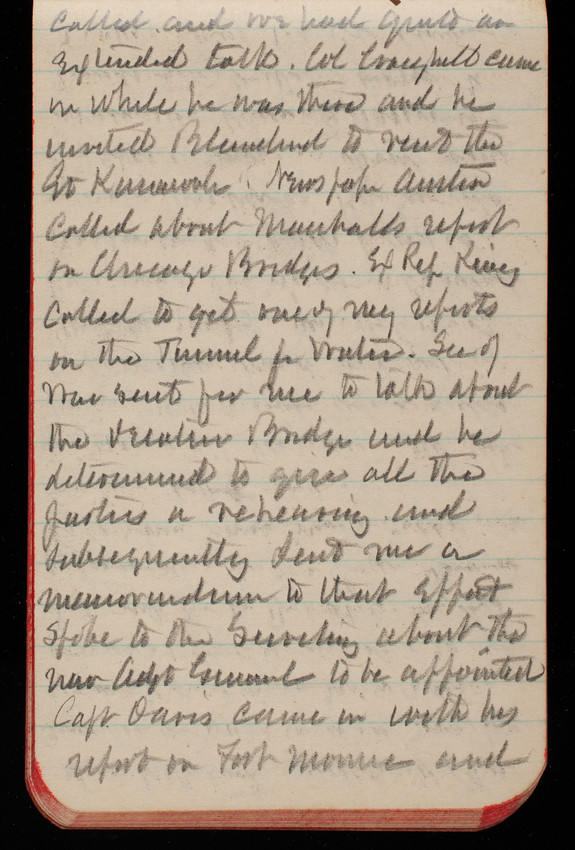 called and we had quite an
Extended talk. Col Craighill came
in while he was there and he
invited to visit the
Gt Kanawah. Newspaper Austin
called about Marshalls report
on Chicago Bridges. Ex Rep King
called to get one of my reports
on the Tunnel for Water. Sec of
War sent for me to talk about
the Bridge and he
determined to give all the
parties a rehearing and
subsequently send me a
memorandum to that effect
Spoke to the Secretary about the
new Adgt General to be appointed
Capt Davis came in with his
report on Fort Monroe and